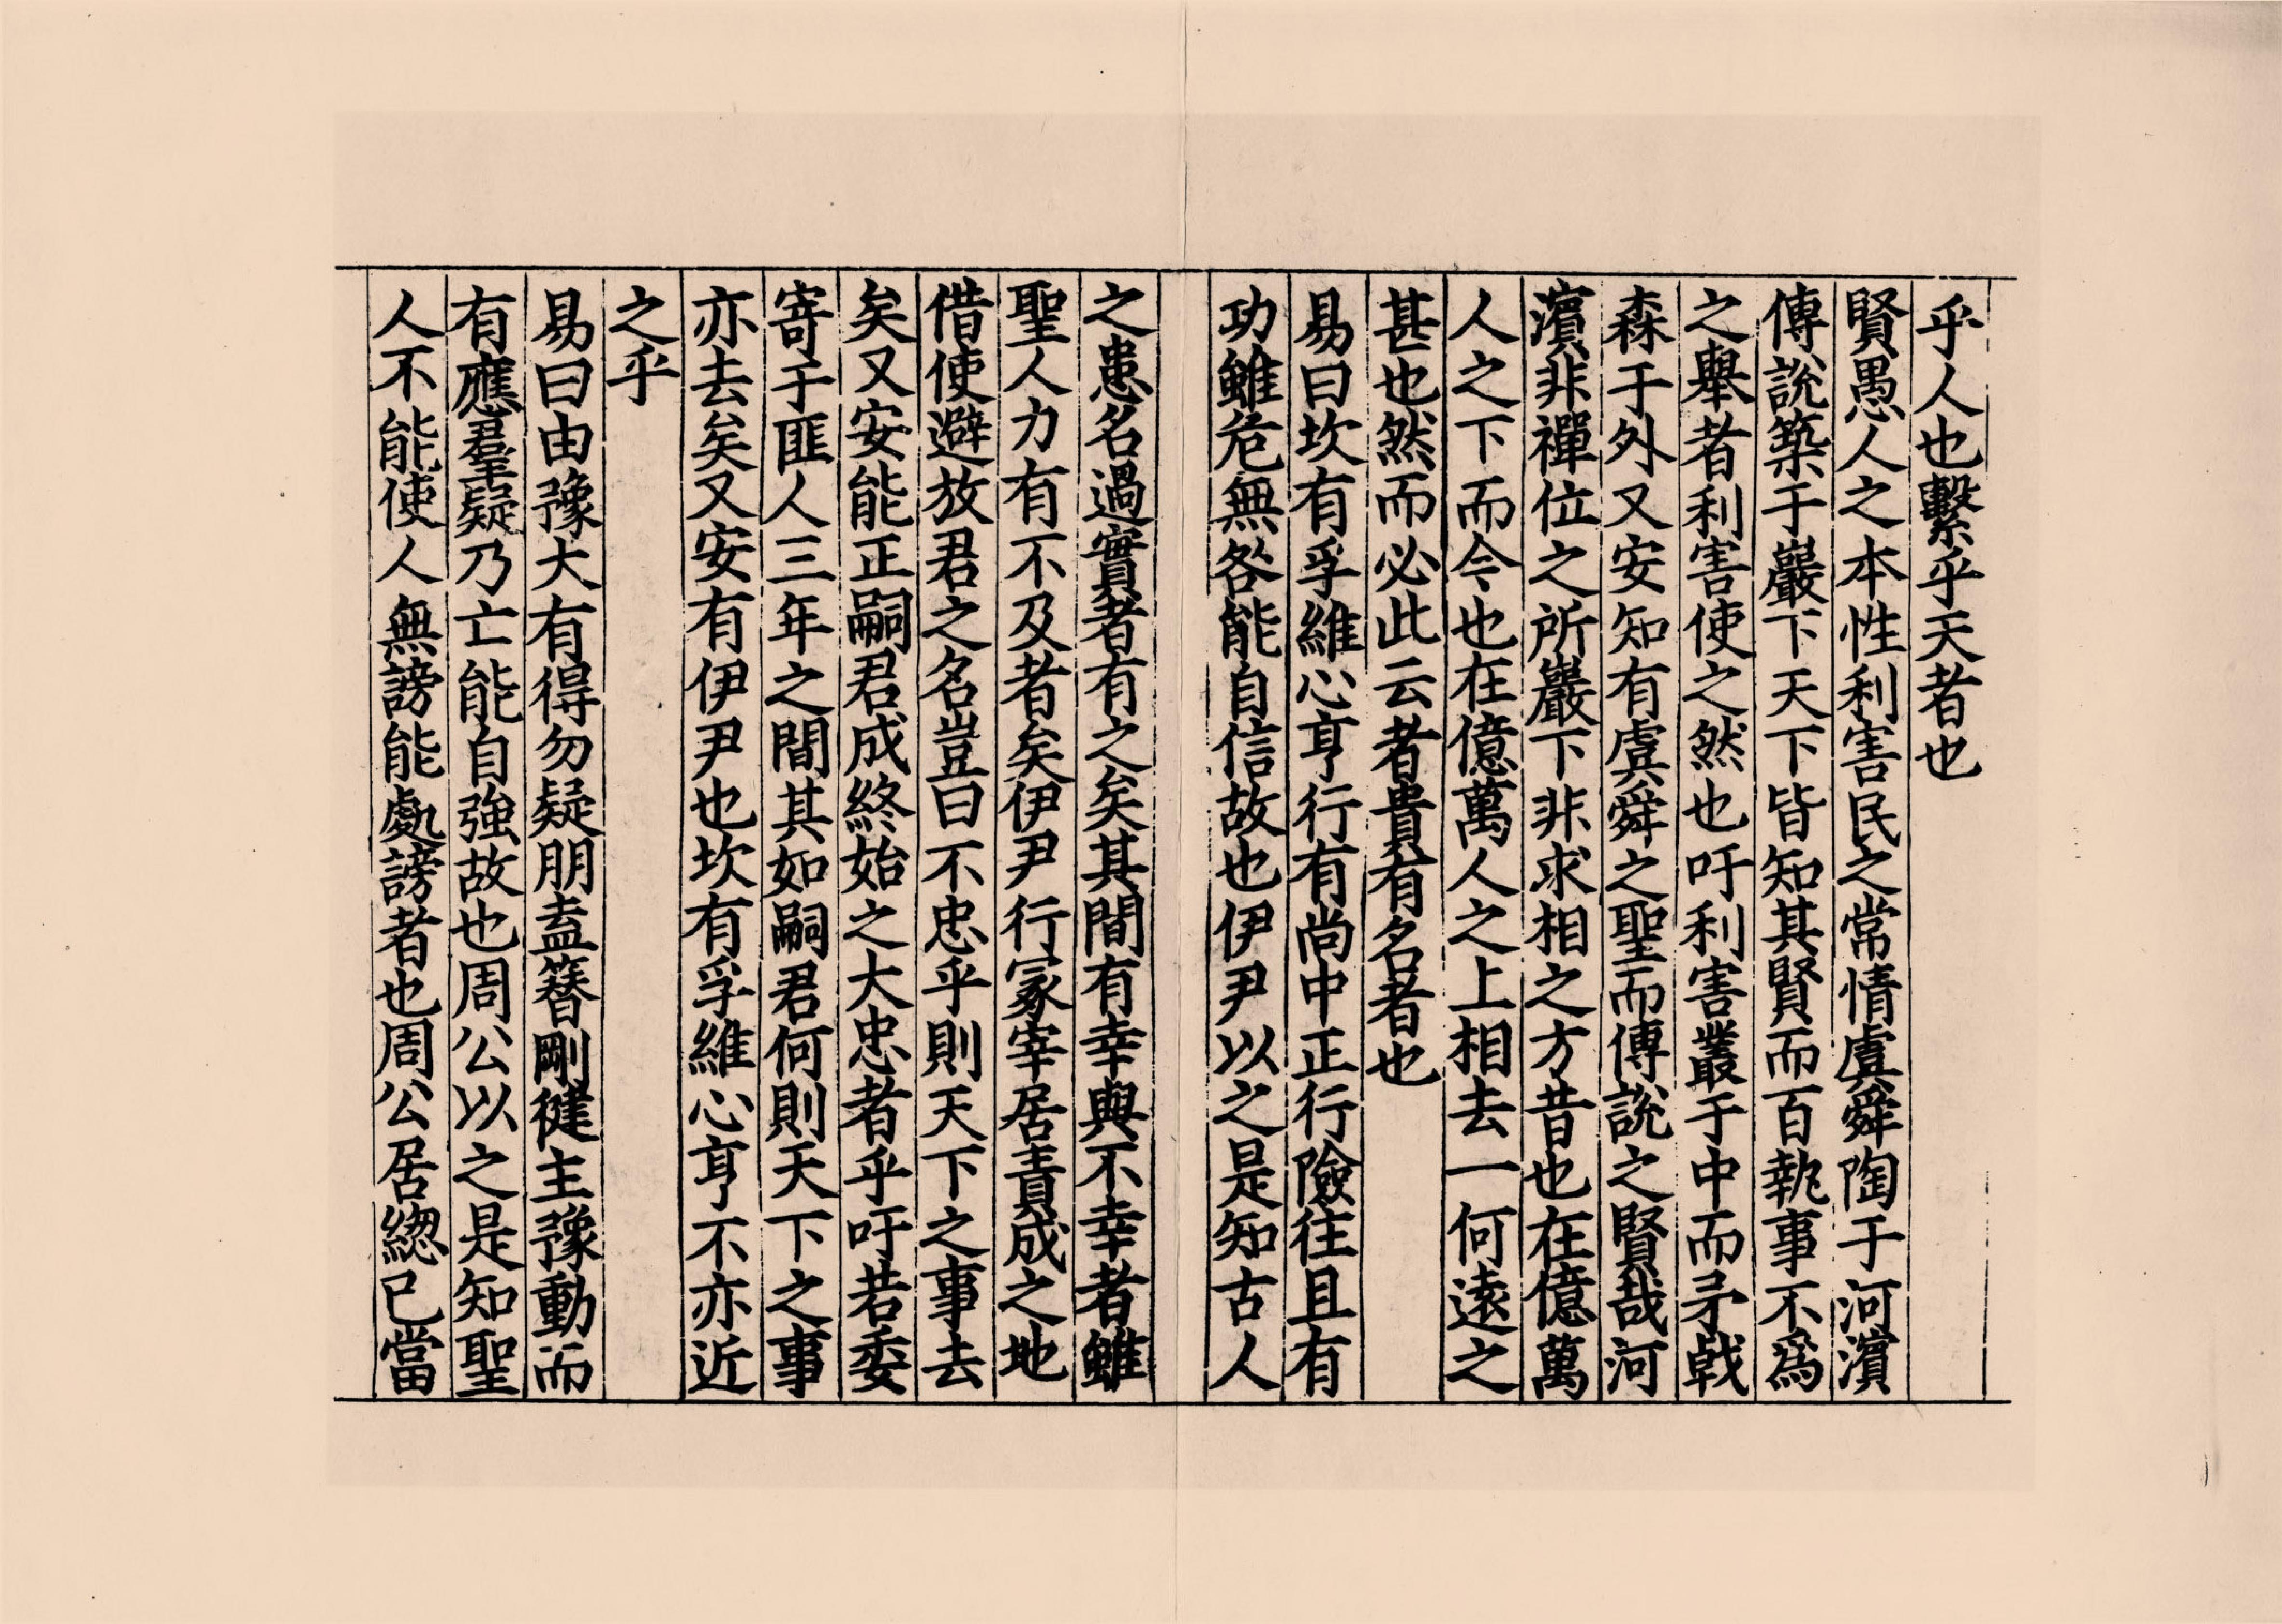 乎人也繫乎天者也
賢愚人之本性利害民之常情虞舜陶于河濱
傅說築于巖下天下皆知其賢而百執事不爲
之舉者利害使之然也吁利害叢于中而矛戟
森于外又安知有虞舜之聖而傅說之賢哉河
濱非禪位之所巖下非求相之方昔也在億萬
人之下而今也在億萬人之上相去一何遠之
甚也然而必此云者貴有名者也
易曰坎有孚維心亨行有尚中正行險往且有
功雖危無咎能自信故也伊尹以之是知古人
之患名過實者有之矣其間有幸與不幸者雖
聖人力有不及者矣伊尹行冢宰居責成之地
借使避放君之名豈曰不忠乎則天下之事去
矣又安能正嗣君成終始之大忠者乎吁若委
寄于匪人三年之間其如嗣君何則天下之事
亦去矣又安有伊尹也坎有孚維心亨不亦近
之乎
易曰由豫大有得勿疑朋盍簪剛健主豫動而
有應羣疑乃亡能自強故也周公以之是知聖
人不能使人無謗能處謗者也周公居緫已當